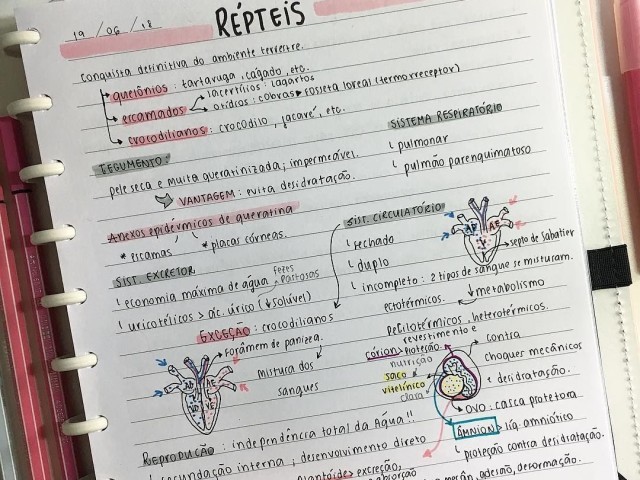 19 / 06 / 18
RÉPTEIS
conquista definitiva do ambiente terrestre.
quelônios : tartaruga, cágado, etc.
escamados
lacertílios : lagartos
ofídios : cobras fosseta loreal (termorreceptor)
crocodilianos : crocodilo, jacaré, etc.
TEGUMENTO:
pele seca e muita queratinizada; impermeável.
VANTAGEM : evita desidratação.
Anexos epidérmicos de queratina
* escamas * placas córneas.
SISTEMA RESPIRATÓRIO
pulmonar
pulmão parenquimatoso
SIST. EXCRETOR
economia máxima de água fezes pastosas
uricotélicos > ác. úrico (↓ solúvel)
SIST. CIRCULATÓRIO
fechado
duplo
incompleto : 2 tipos de sangue se misturam.
AD AE
V
septo de Sabatier
ectotérmicos. ↓ metabolismo
Pecilotérmicos, heterotérmicos.
EXCEÇÃO : crocodilianos
Forâmem de panizza.
mistura dos
sangues
AD AE
VD VE
revestimento e
córion > proteção
nutrição
saco
vitelínico
clara
contra
choques mecânicos
e desidratação.
OVO : casca protetora
ÂMNION > líq. amniótico
proteção contra desidratação.
REPRODUÇÃO : independência total da Água !!
fecundação interna ; desenvolvimento direto
alantóide > excreção,
absorção
adesão, deformação.